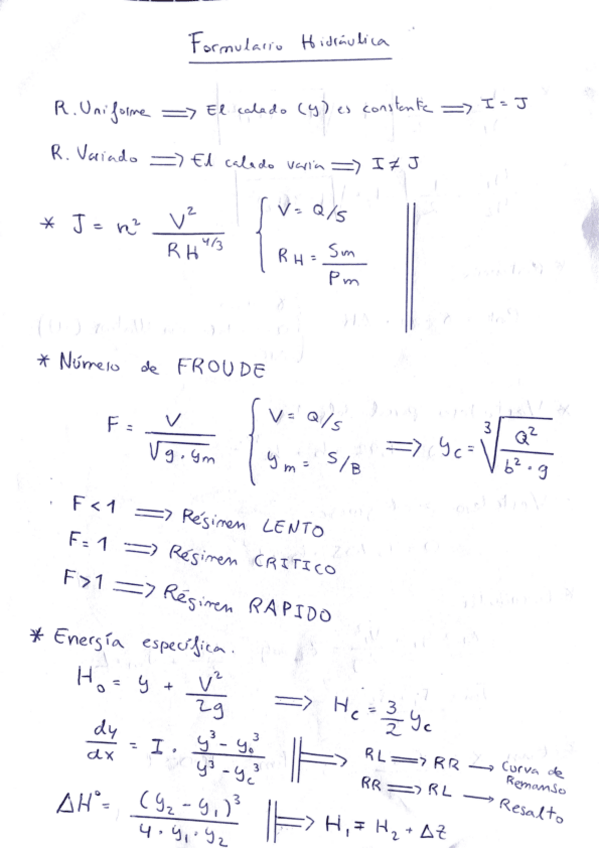 Formulario Hidráulica
R. Uniforme ⟹ El calado (y) es constante ⟹ I = J
R. Variado ⟹ El calado varía ⟹ I ≠ J
* J = n² V² / RH^4/3 { V = Q/S
RH = Sm / Pm
* Número de FROUDE
F = V / √(g · ym) { V = Q/S
ym = S/B ⟹ yc = ∛(Q² / b² · g)
F < 1 ⟹ Régimen LENTO
F = 1 ⟹ Régimen CRITICO
F > 1 ⟹ Régimen RAPIDO
* Energía específica.
H₀ = y + V² / 2g ⟹ Hc = 3/2 yc
dy/dx = I · (y³ - y₀³) / (y³ - yc³) ⟹ RL ⟹ RR → Curva de Remanso
RR ⟹ RL → Resalto
ΔH° = (y₂ - y₁)³ / 4 · y₁ · y₂ ⟹ H₁ = H₂ + ΔZ